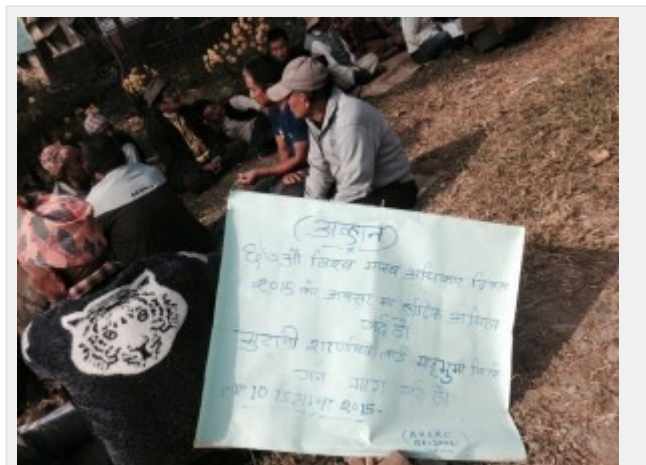 (आव्हान)
६७औ विश्व मानव अधिकार दिवस
२०15 को अवसर मा हार्दिक अपिल
गर्दछौ
भुटानी शरणार्थी लाई मातृभुमी फिर्ता
जान माग गर्दछौ।
10 डिसेम्बर २०15-